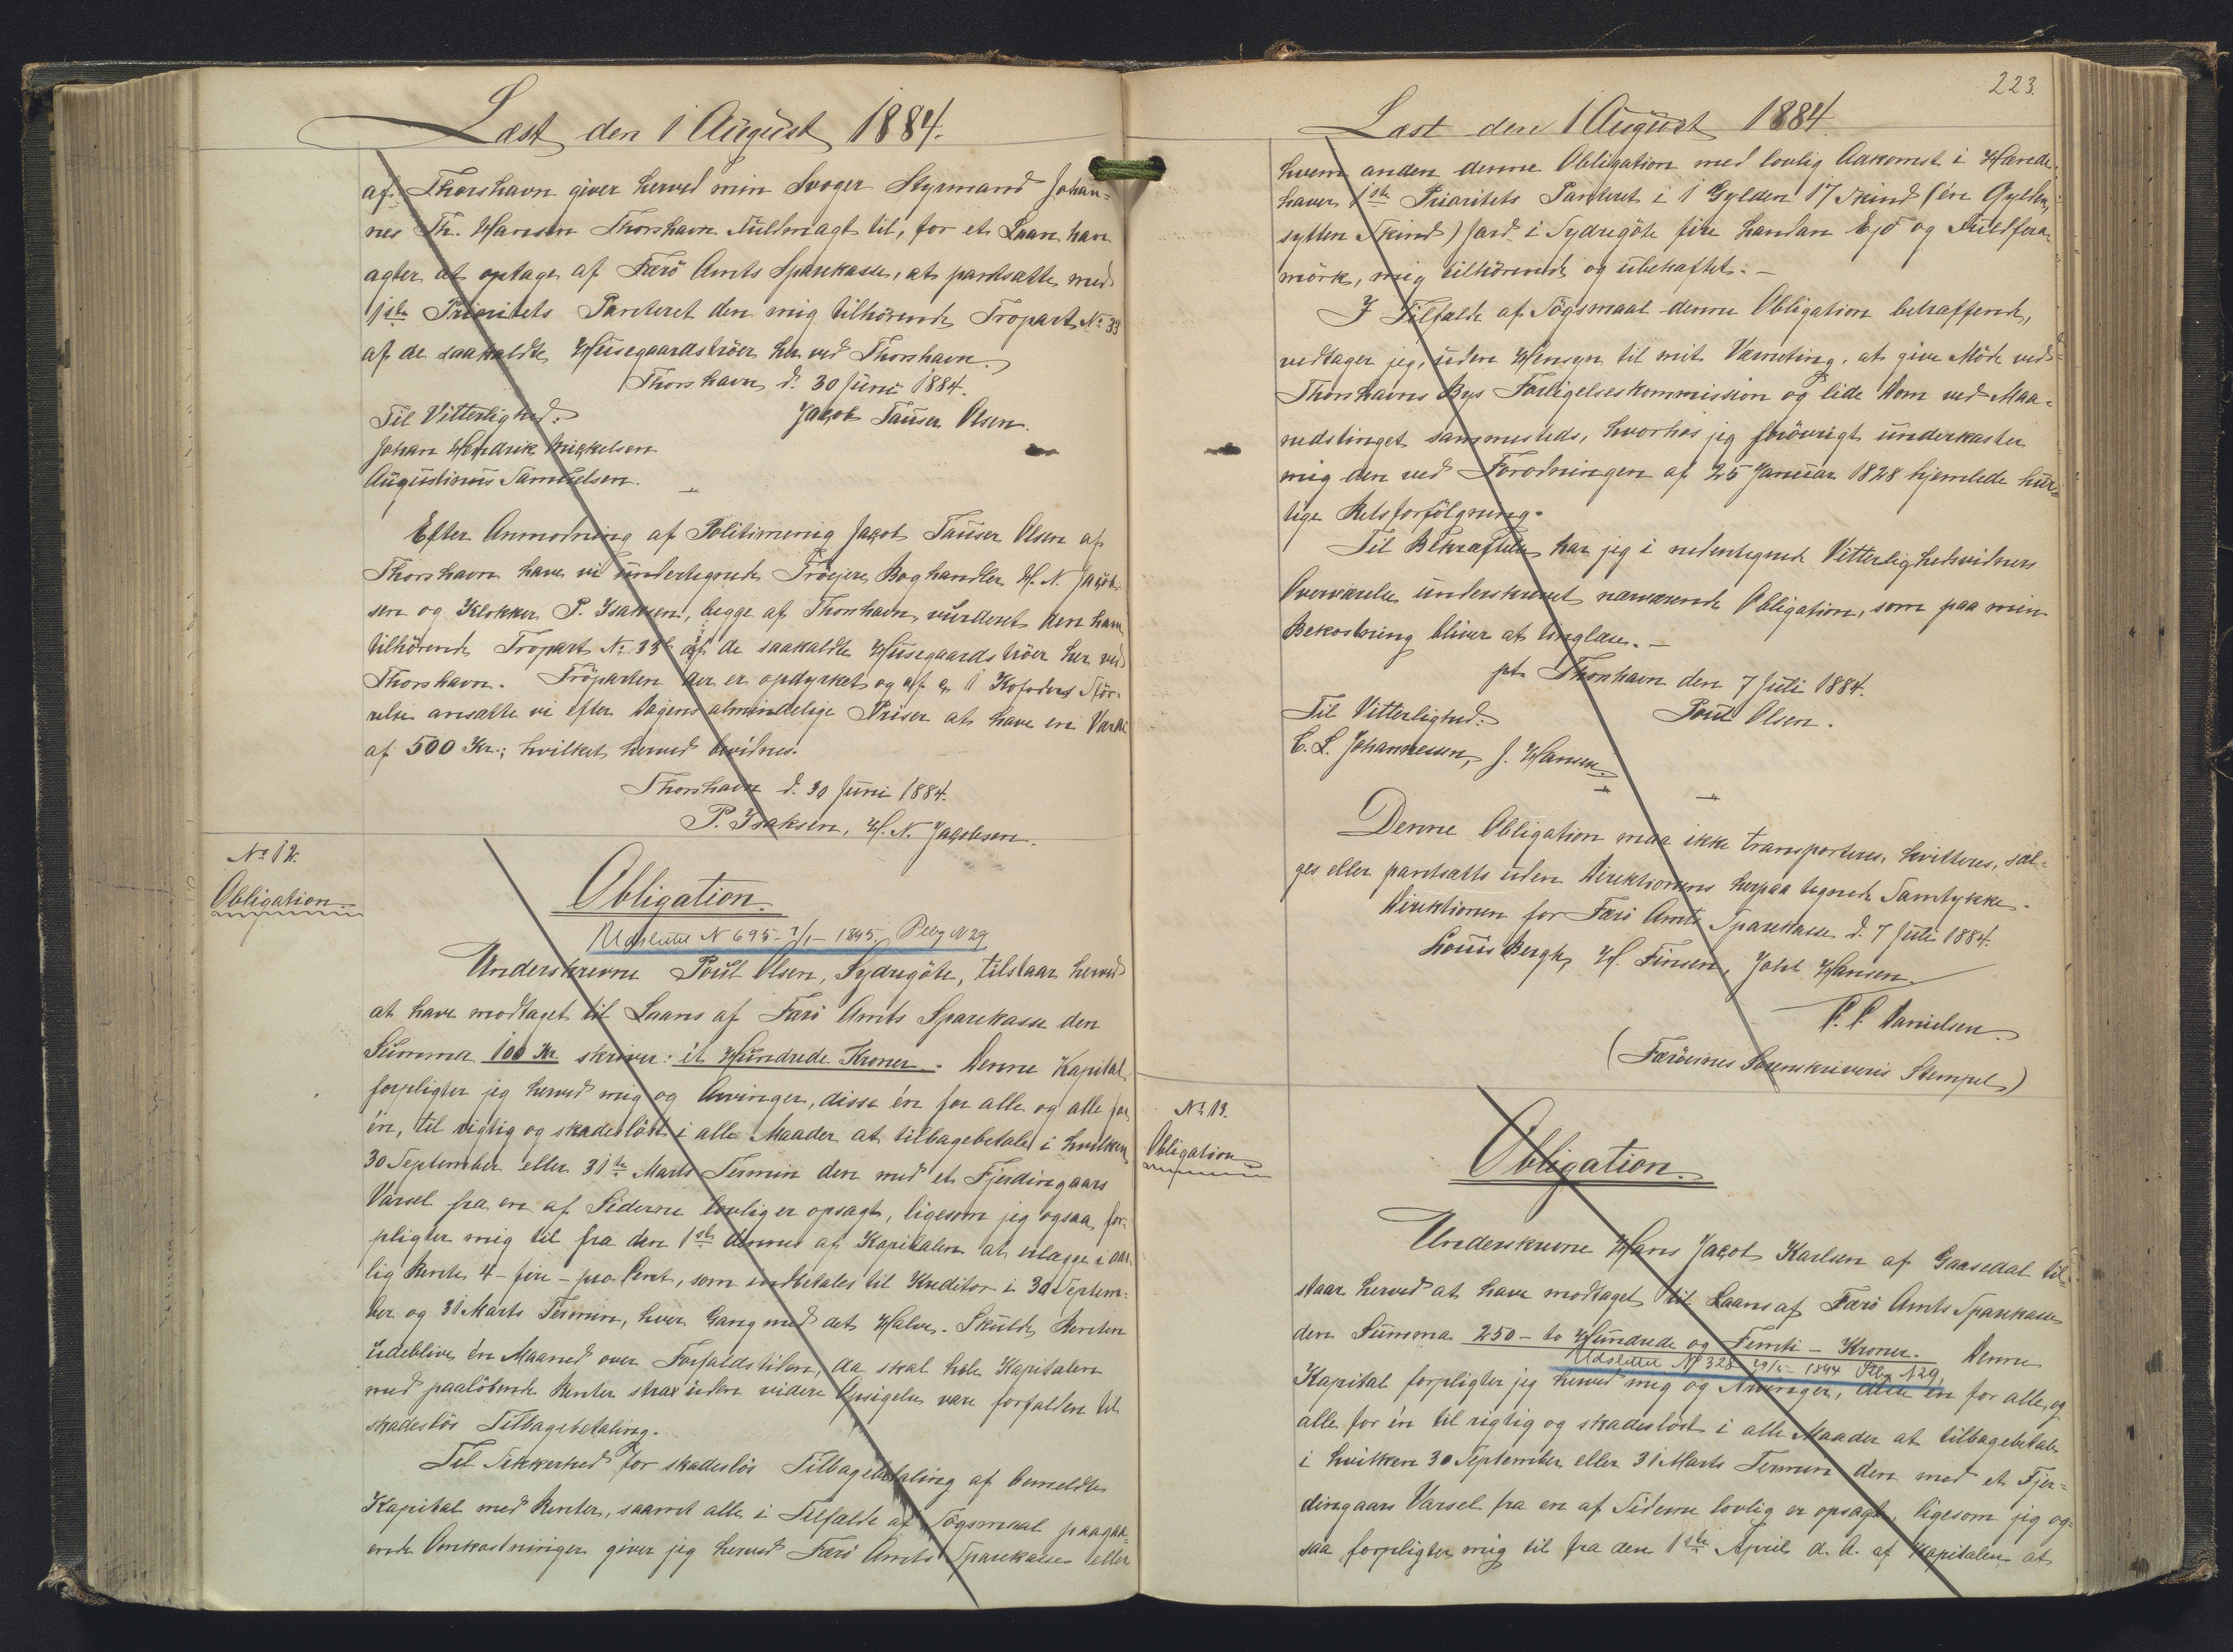 Læst den 1 August 1884.
af Thorshavn giver herved min Svoger Styrmand Johan=
nes Th. Hansen Thorshavn Fuldmagt til, for et Laan han
agter at optage af Færö Amts Sparekasse, at pantsætte med
1ste Prioritets Panteret den mig tilhörende Tröpart No 33
af de saakaldte Huusegaardströer her ved Thorshavn.
Thorshavn d. 30 Juni 1884.
Til Vitterlighed: Jacob Tauser Olsen.
Johan Hendrik Mickelsen
Augustinus Samuelsen.
Efter Anmodning af Politimenig Jacob Tauser Olsen af
Thorshavn have vi undertegnede Tröejere Boghandler H. N. Jacob-
sen og Klokker P. Isaksen, begge af Thorshavn, vurderet den ham
tilhörende Tröpart No 33 af de saakaldte Huusegaardströer her ved
Thorshavn. Tröparten der er opdyrket og af ca 1 Kofoders Stör-
relse ansætte vi efter Dagens almindelige Priser at have en Værdi
af 500 Kr.; hvilket herved bevidnes.
Thorshavn d. 30 Juni 1884.
P. Isaksen, H. N. Jacobsen.
No 12.
Obligation
Obligation.
Udslettet N 695- 7/1 - 1895. Pbg N 29
Underskrevne Poul Olsen, Sydregöte, tilstaar herved
at have modtaget til Laans af Færö Amts Sparekasse den
Summa 100 Kr skriver: ét Hundrede Kroner. Denne Kapital
forpligter jeg herved mig og Arvinger, disse én for alle og alle for
én, til rigtig og skadeslöst i alle Maader at tilbagebetale i hvilken
30 September eller 31te Marts Termin den med et Fjerdingaars
Varsel fra en af Siderne lovlig er opsagt, ligesom jeg ogsaa for-
pligter mig til fra den 1ste dennes af Kapitalen at erlægge i aar-
lig Rente 4 - fire - pro Cent, som indbetales til Kreditor i 30 Septem-
ber og 31 Marts Termin, hver Gang med det Halve. Skulde Renten
udeblive én Maaned over Forfaldstiden, da skal hele Kapitalen
med paalöbende Renter strax uden videre Opsigelse være forfalden til
skadeslös Tilbagebetaling.
Til Sikkerhed for skadeslös Tilbagebetaling af bemeldte
Kapital med Renter, saamt alle i Tilfælde af Sögsmaal paagaa-
ende Omkostninger giver jeg herved Færö Amts Sparekasse eller
223.
Læst den 1 August 1884
hvem anden denne Obligation med lovlig Adkomst i Hænde
haver 1ste Prioritets Panteret i 1 Gylden 17 Skind (én Gylden,
sytten Skind) Jord i Sydregöte fire handan Ejö og
mörk, mig tilhörende og ubehæftet. -
I Tilfælde af Sögsmaal denne Obligation betræffende,
vedtager jeg, uden Hensyn til mit Værneting, at give Möde ved
Thorshavns Bys Forligelseskommission og lide Dom ved Maa-
nedstinget sammesteds, hvorhos jeg forövrigt underkaster
mig den ved Forordningen af 25 Januar 1828 hjemlede hur-
tige Retsforfölgning.
Til Bekræftelse har jeg i nedentegnede Vitterlighedsvidners
Overværelse underskrevet nærværende Obligation, som paa min
Bekostning bliver at tinglæse. -
pt. Thorshavn den 7 Juli 1884.
Til Vitterlighed: Poul Olsen.
C. L. Johannesen, J. Hansen.
Denne Obligation maa ikke transporteres, kvitteres, sæl-
ges eller pantsættes uden Direktionens herpaa tegnede Samtykke.
Direktionen for Færö Amts Sparekasse d. 7 Juli 1884.
Louis Bergh, H. Finsen, Johs Hansen
P. P. Danielsen.
(Færöernes Sorenskriveris Stempel)
No 13.
Obligation
Obligation.
Underskrevne Hans Jacob Karlsen af Gaasedal til-
staar herved at have modtaget til Laans af Færö Amts Sparekasse
den Summa 250 - to Hundrede og Femti - Kroner. Denne
Udslettet No 328 29/5 - 1894 Pbg N 29
Kapital forpligter jeg herved mig og Arvinger, disse én for alle og
alle for én til rigtig og skadeslöst i alle Maader at tilbagebetale
i hvilken 30 September eller 31 Marts Termin den med et Fjer-
dingaars Varsel fra en af Siderne lovlig er opsagt, ligesom jeg og-
saa forpligter mig til fra den 1ste April d. A. af Kapitalen at